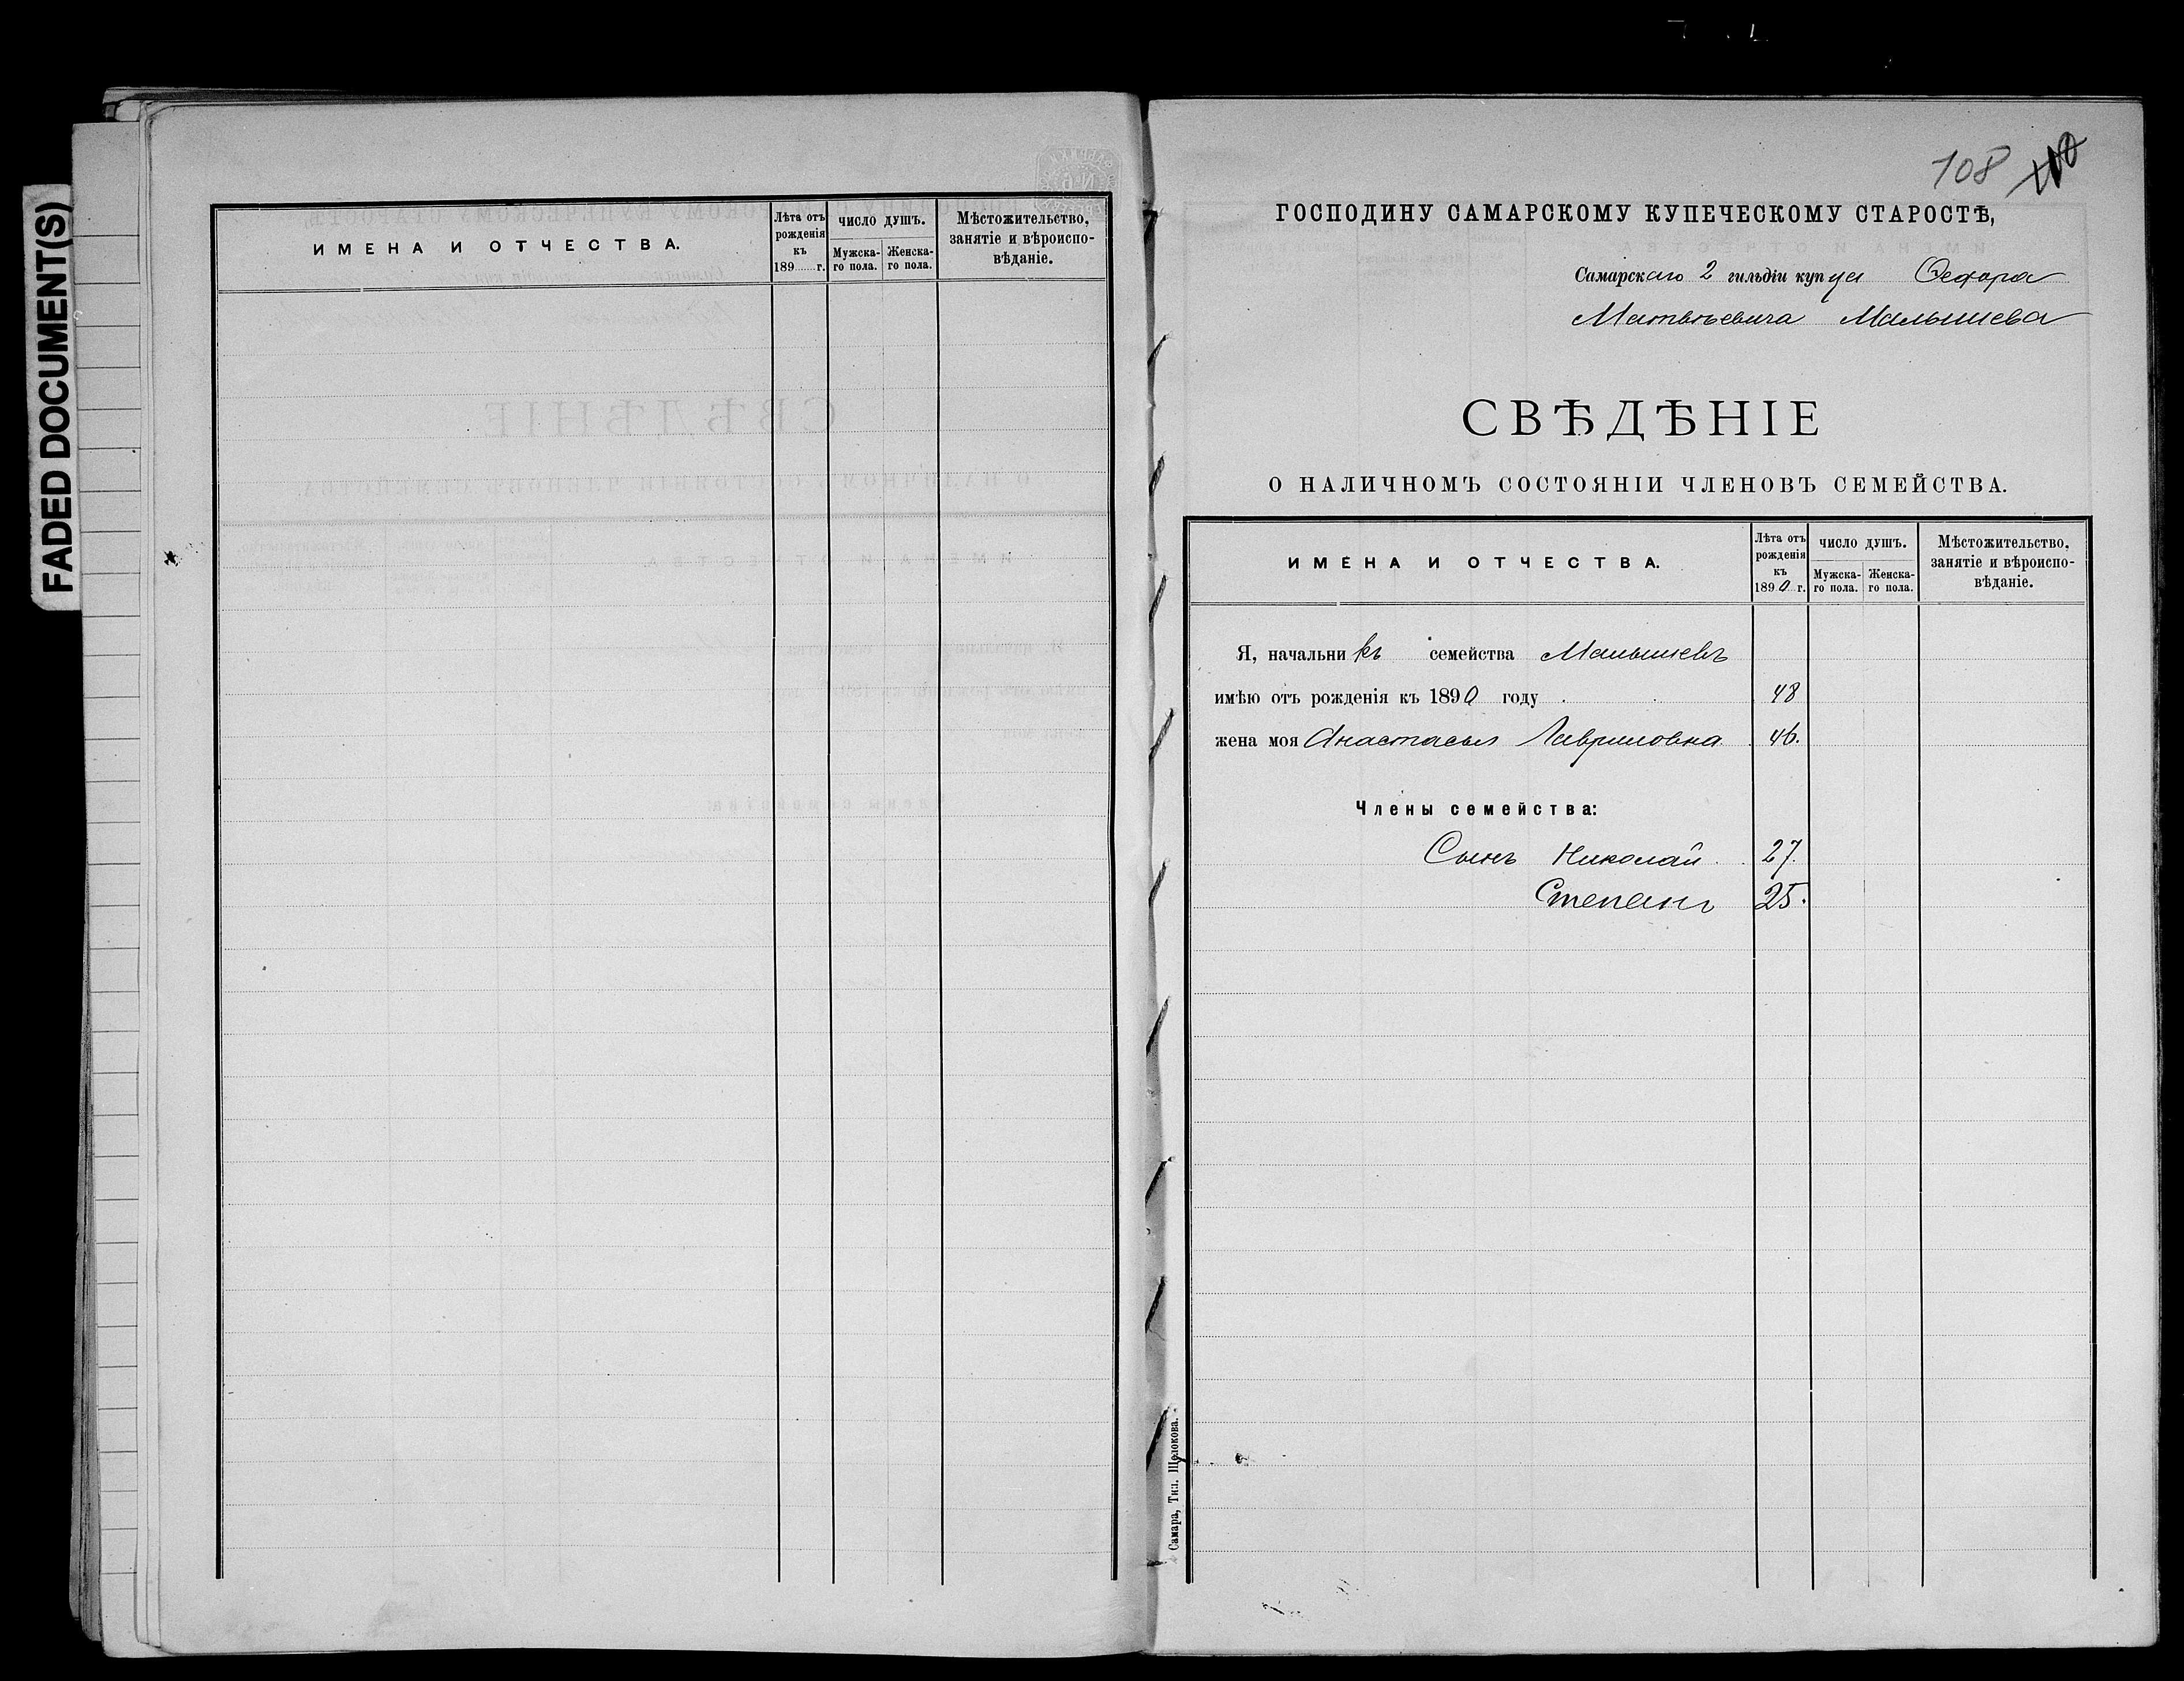 FADED DOCUMENT(S)
ИМЕНА И ОТЧЕСТВА.
Лѣта отъ рожденія къ 189 г.
ЧИСЛО ДУШЪ.
Мужска-го пола.
Женска-го пола.
Мѣстожительство, занятіе и вѣроиспо-вѣданіе.
108
ГОСПОДИНУ САМАРСКОМУ КУПЕЧЕСКОМУ СТАРОСТѢ,
Самарскаго 2 гильдіи купца Ѳедора
Матвѣевича Малышева
СВѢДѢНІЕ
О НАЛИЧНОМЪ СОСТОЯНІИ ЧЛЕНОВЪ СЕМЕЙСТВА.
ИМЕНА И ОТЧЕСТВА.
Лѣта отъ рожденія къ 1890 г.
ЧИСЛО ДУШЪ.
Мужска-го пола.
Женска-го пола.
Мѣстожительство, занятіе и вѣроиспо-вѣданіе.
Я, начальникъ семейства Малышевъ
имѣю отъ рожденія къ 1890 году 48
жена моя Анастасья Гавриловна 46.
Члены семейства:
Сынъ Николай 27.
Степанъ 25.
Самара, Тип. Щелокова.